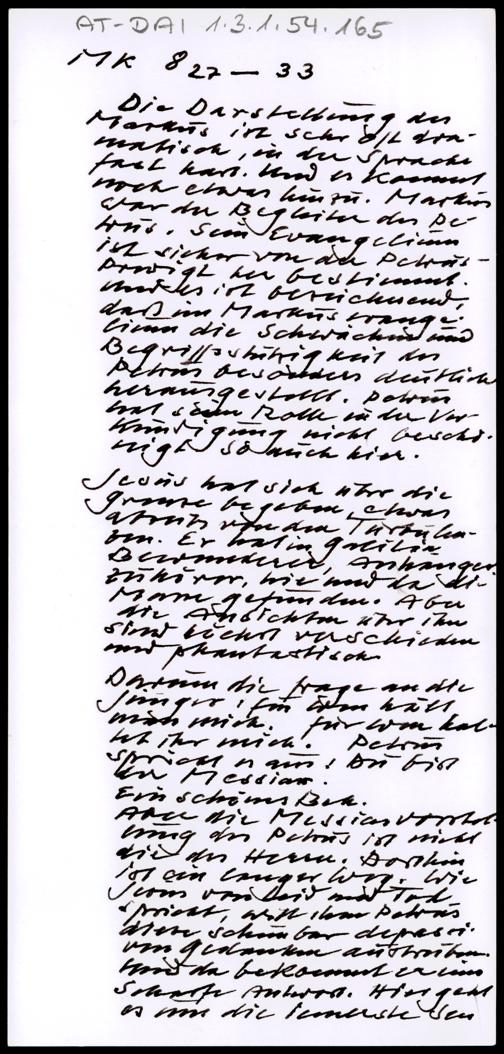 AT-DAI 1.3.1.54.165
MK 8 27 — 33
Die Darstellung des
Markus ist sehr oft dra-
matisch, in der Sprache
fast hart. Und es kommt
noch etwas hinzu. Markus
war der Begleiter des Pe-
trus. Sein Evangelium
ist sicher von der Petrus-
predigt her bestimmt.
Und es ist bezeichnend,
daß im Markusevange-
lium die Schwächen und
Begriffsstützigkeit des
Petrus besonders deutlich
herausgestellt. Petrus
hat seine Rolle in der Ver-
kündigung nicht beschö-
nigt. So auch hier.
Jesus hat sich über die
Grenze begeben, etwas
abseits von den Turbulen-
zen. Er hat in Galiläa
Bewunderer, Anhänger
Zuhörer, hie und da die
Masse gefunden. Aber
die Ansichten über ihn
sind höchst verschieden
und phantastisch
Darum die Frage an die
Jünger: Für wen hält
man mich. Für wen hal-
tet ihr mich. Petrus
spricht es aus: Du bist
der Messias.
Ein schönes Bek.
Aber die Messiasvorstel-
lung des Petrus ist nicht
die des Herrn. Dorthin
ist ein langer Weg. Wie
Jesus von Leid und Tod
spricht, will ihm Petrus
diese scheinbar depressi-
ven Gedanken austreiben.
Und da bekommt er eine
scharfe Antwort. Hier geht
es um die innerste Sen